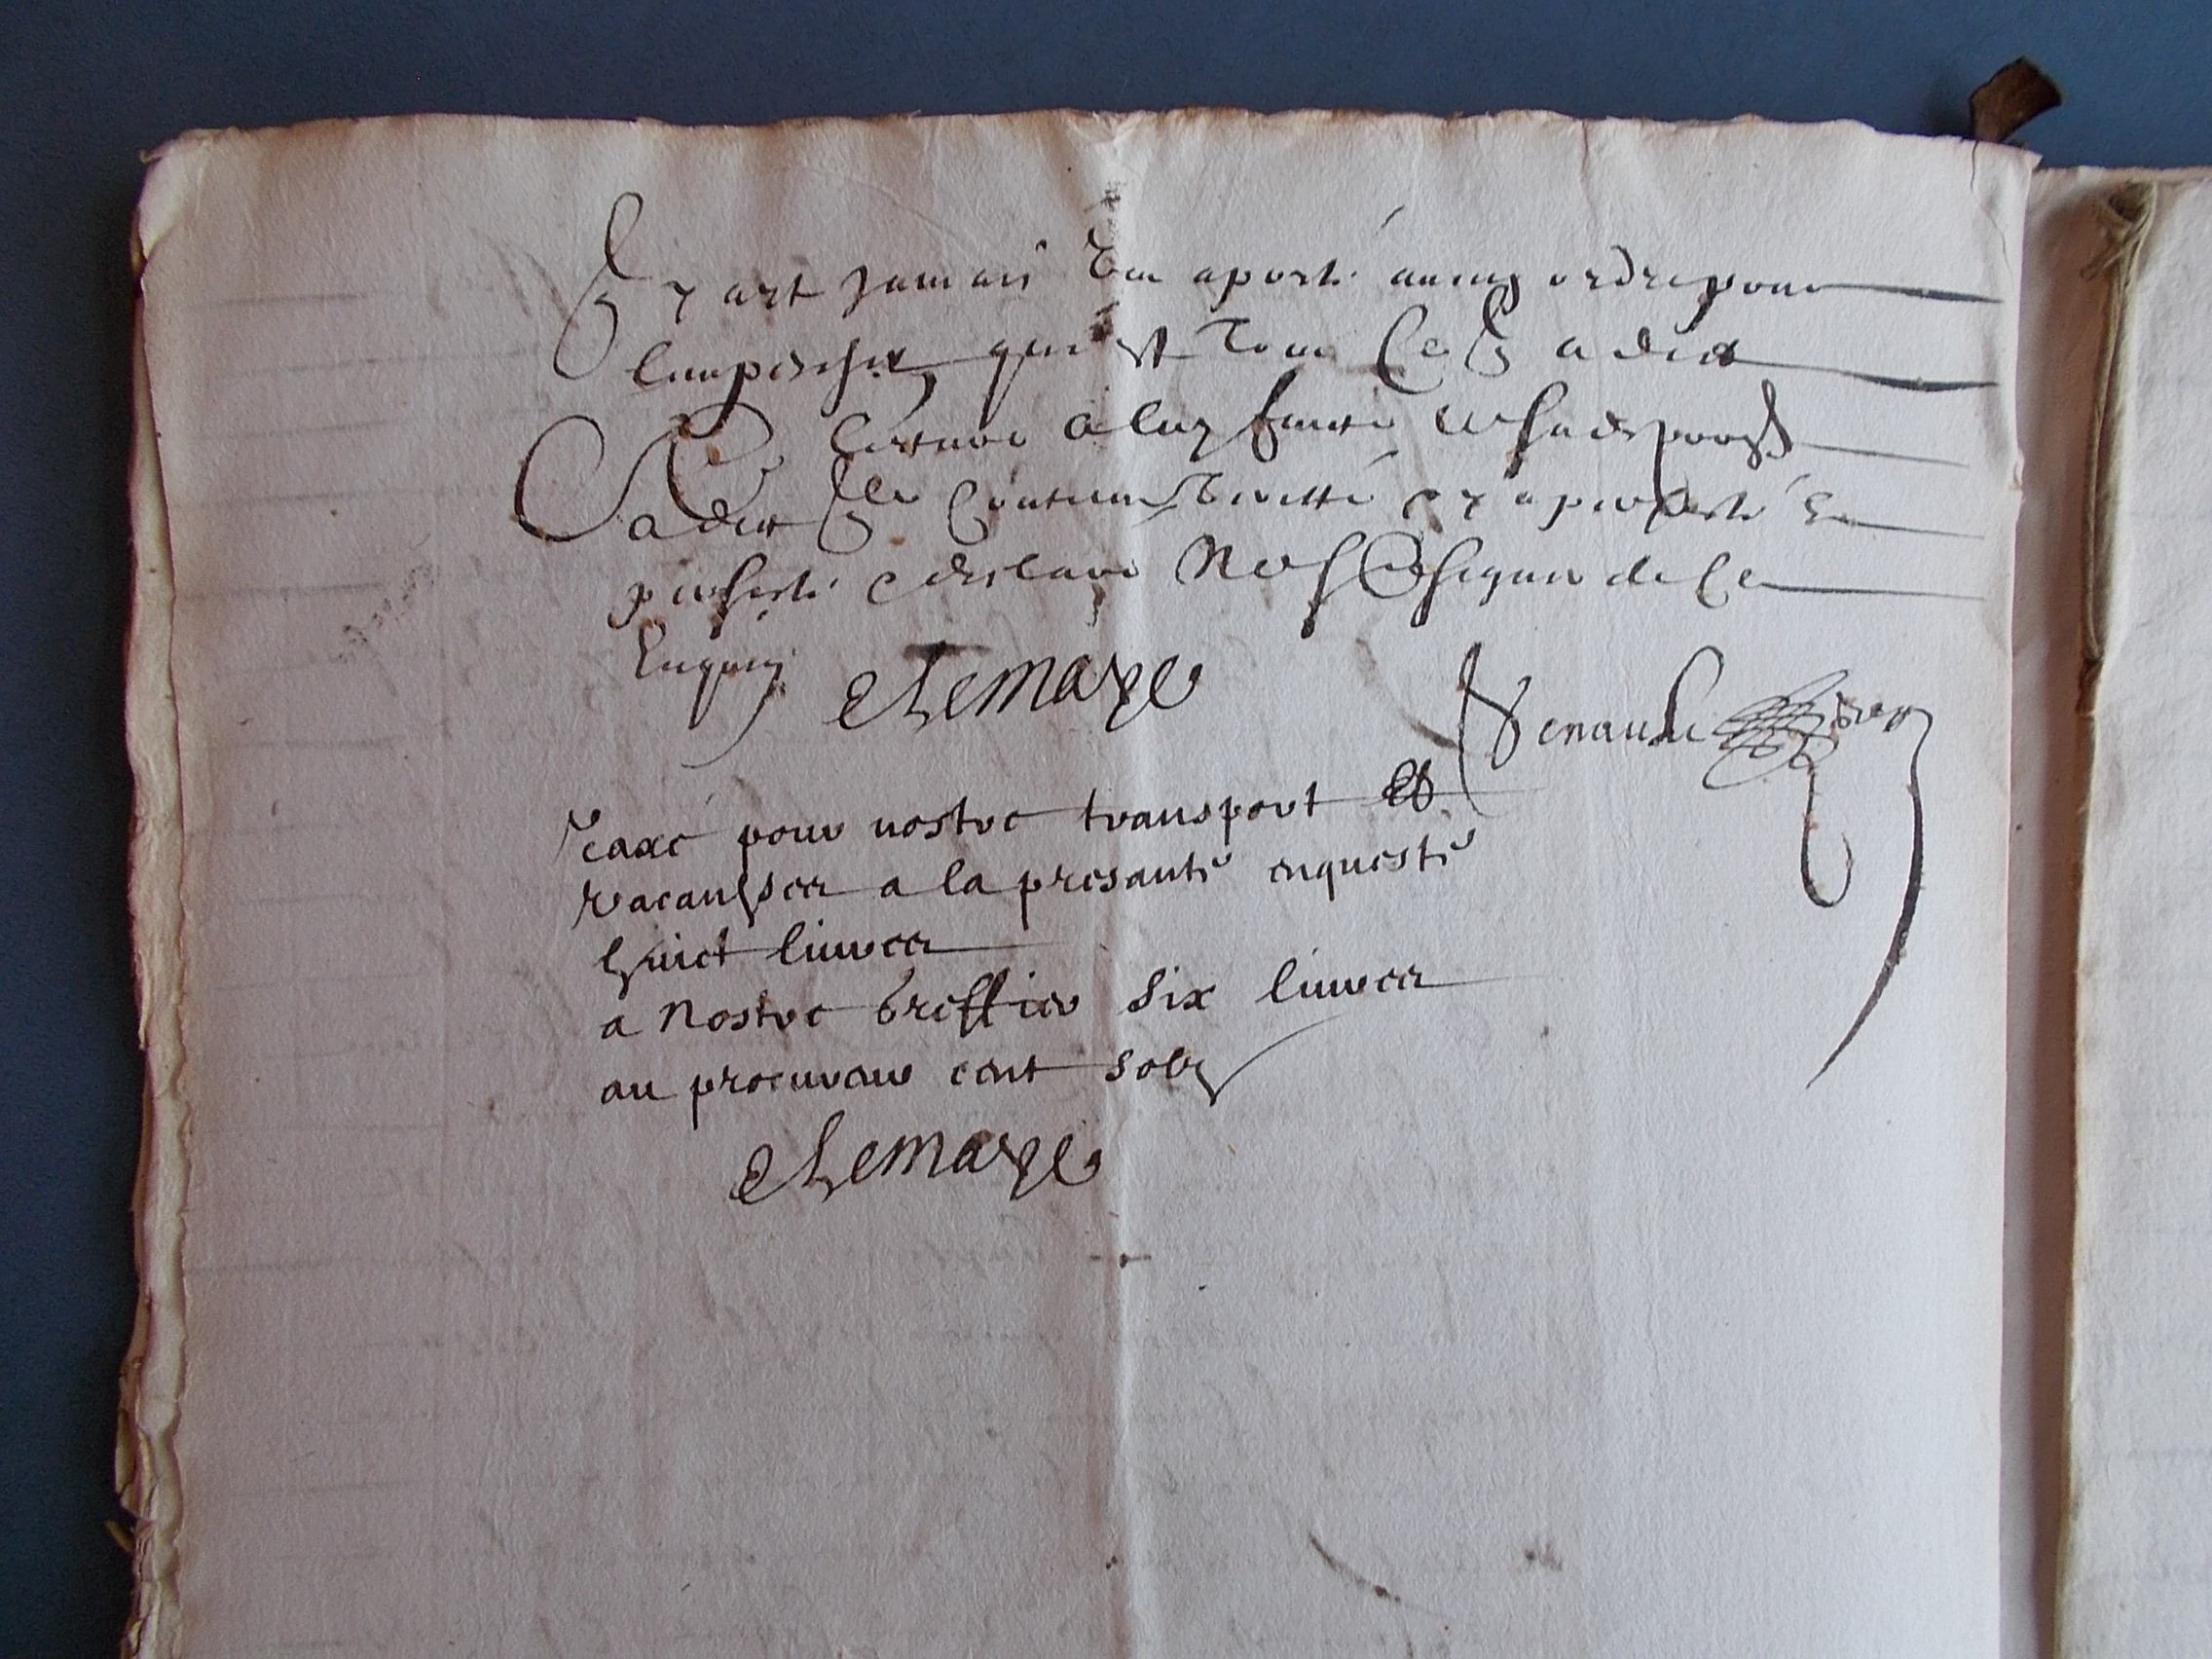 y ayt jamais eu aporté aucun ordre pour
l'empescher qui est tout ce q a dict
Lecture a luy faicte de sa depposon
a dict elle contenir veritté y a persisté et
persiste e declaré ne scavoir signer de ce
Enquis
Lemaye
Renault
Taxé pour nostre transport et
vacanses a la presante enqueste
huict livres
a nostre Greffier six livres
au procureur cent solz
Lemaye